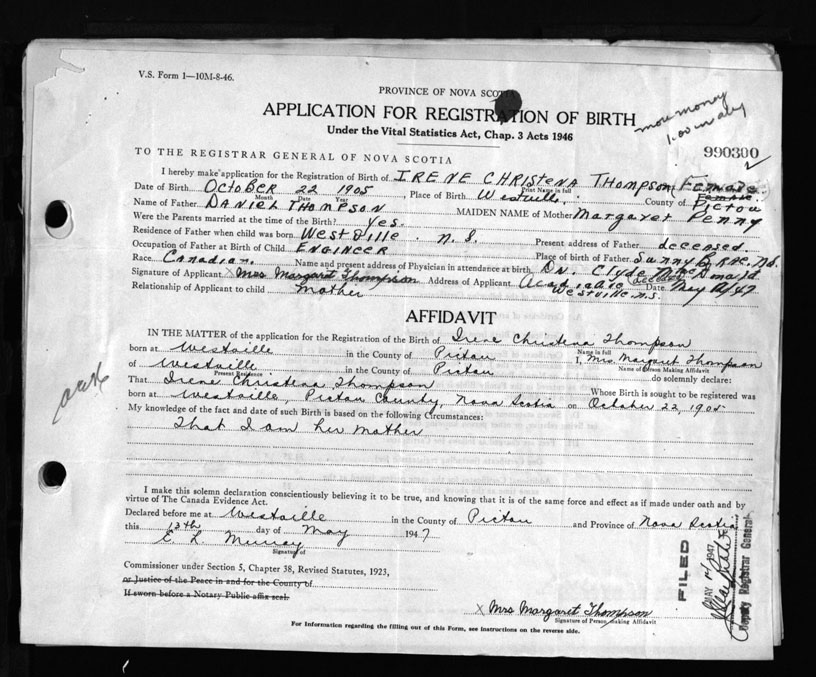 V.S. Form 1—10M-8-46.
PROVINCE OF NOVA SCOTIA
APPLICATION FOR REGISTRATION OF BIRTH
more money
Under the Vital Statistics Act, Chap. 3 Acts 1946
TO THE REGISTRAR GENERAL OF NOVA SCOTIA
990300
I hereby make application for the Registration of Birth of IRENE CHRISTENA THOMPSON Female.
Print Name in full
Date of Birth OCTOBER 22 1905, Place of Birth Westville. County of Pictou
Month Date Year
Name of Father DANIEL THOMPSON MAIDEN NAME of Mother Margaret Penny
Were the Parents married at the time of Birth? Yes.
Residence of Father when child was born Westville. N.S. Present address of Father deceased.
Occupation of Father at Birth of Child ENGINEER Place of birth of Father Sunny BRAE, N.S.
Race Canadian. Name and present address of Physician in attendance at birth Dr. Clyde (deceased)
Signature of Applicant X Mrs Margaret Thompson Address of Applicant Acadia Ave Date May 12/47
Westville N.S.
Relationship of Applicant to child Mother
AFFIDAVIT
IN THE MATTER of the application for the Registration of the Birth of Irene Christena Thompson
Name in full
born at Westville in the County of Pictou I, Mrs. Margaret Thompson
Name of Person Making Affidavit
of Westville in the County of Pictou do solemnly declare:
Present Residence
That Irene Christena Thompson Whose Birth is sought to be registered was
born at Westville, Pictou County, Nova Scotia on October 22, 1905
My knowledge of the fact and date of such Birth is based on the following Circumstances:
That I am her Mother
I make this solemn declaration conscientiously believing it to be true, and knowing that it is of the same force and effect as if made under oath and by
virtue of The Canada Evidence Act.
Declared before me at Westville in the County of Pictou and Province of Nova Scotia
this 13th day of May 1947
E. L. Murray
Signature of
Commissioner under Section 5, Chapter 38, Revised Statutes, 1923,
or Justice of the Peace in and for the County of
If sworn before a Notary Public affix seal.
X Mrs Margaret Thompson
Signature of Person making Affidavit
For Information regarding the filling out of this Form, see instructions on the reverse side.
FILED
MAY 1947
Deputy Registrar General